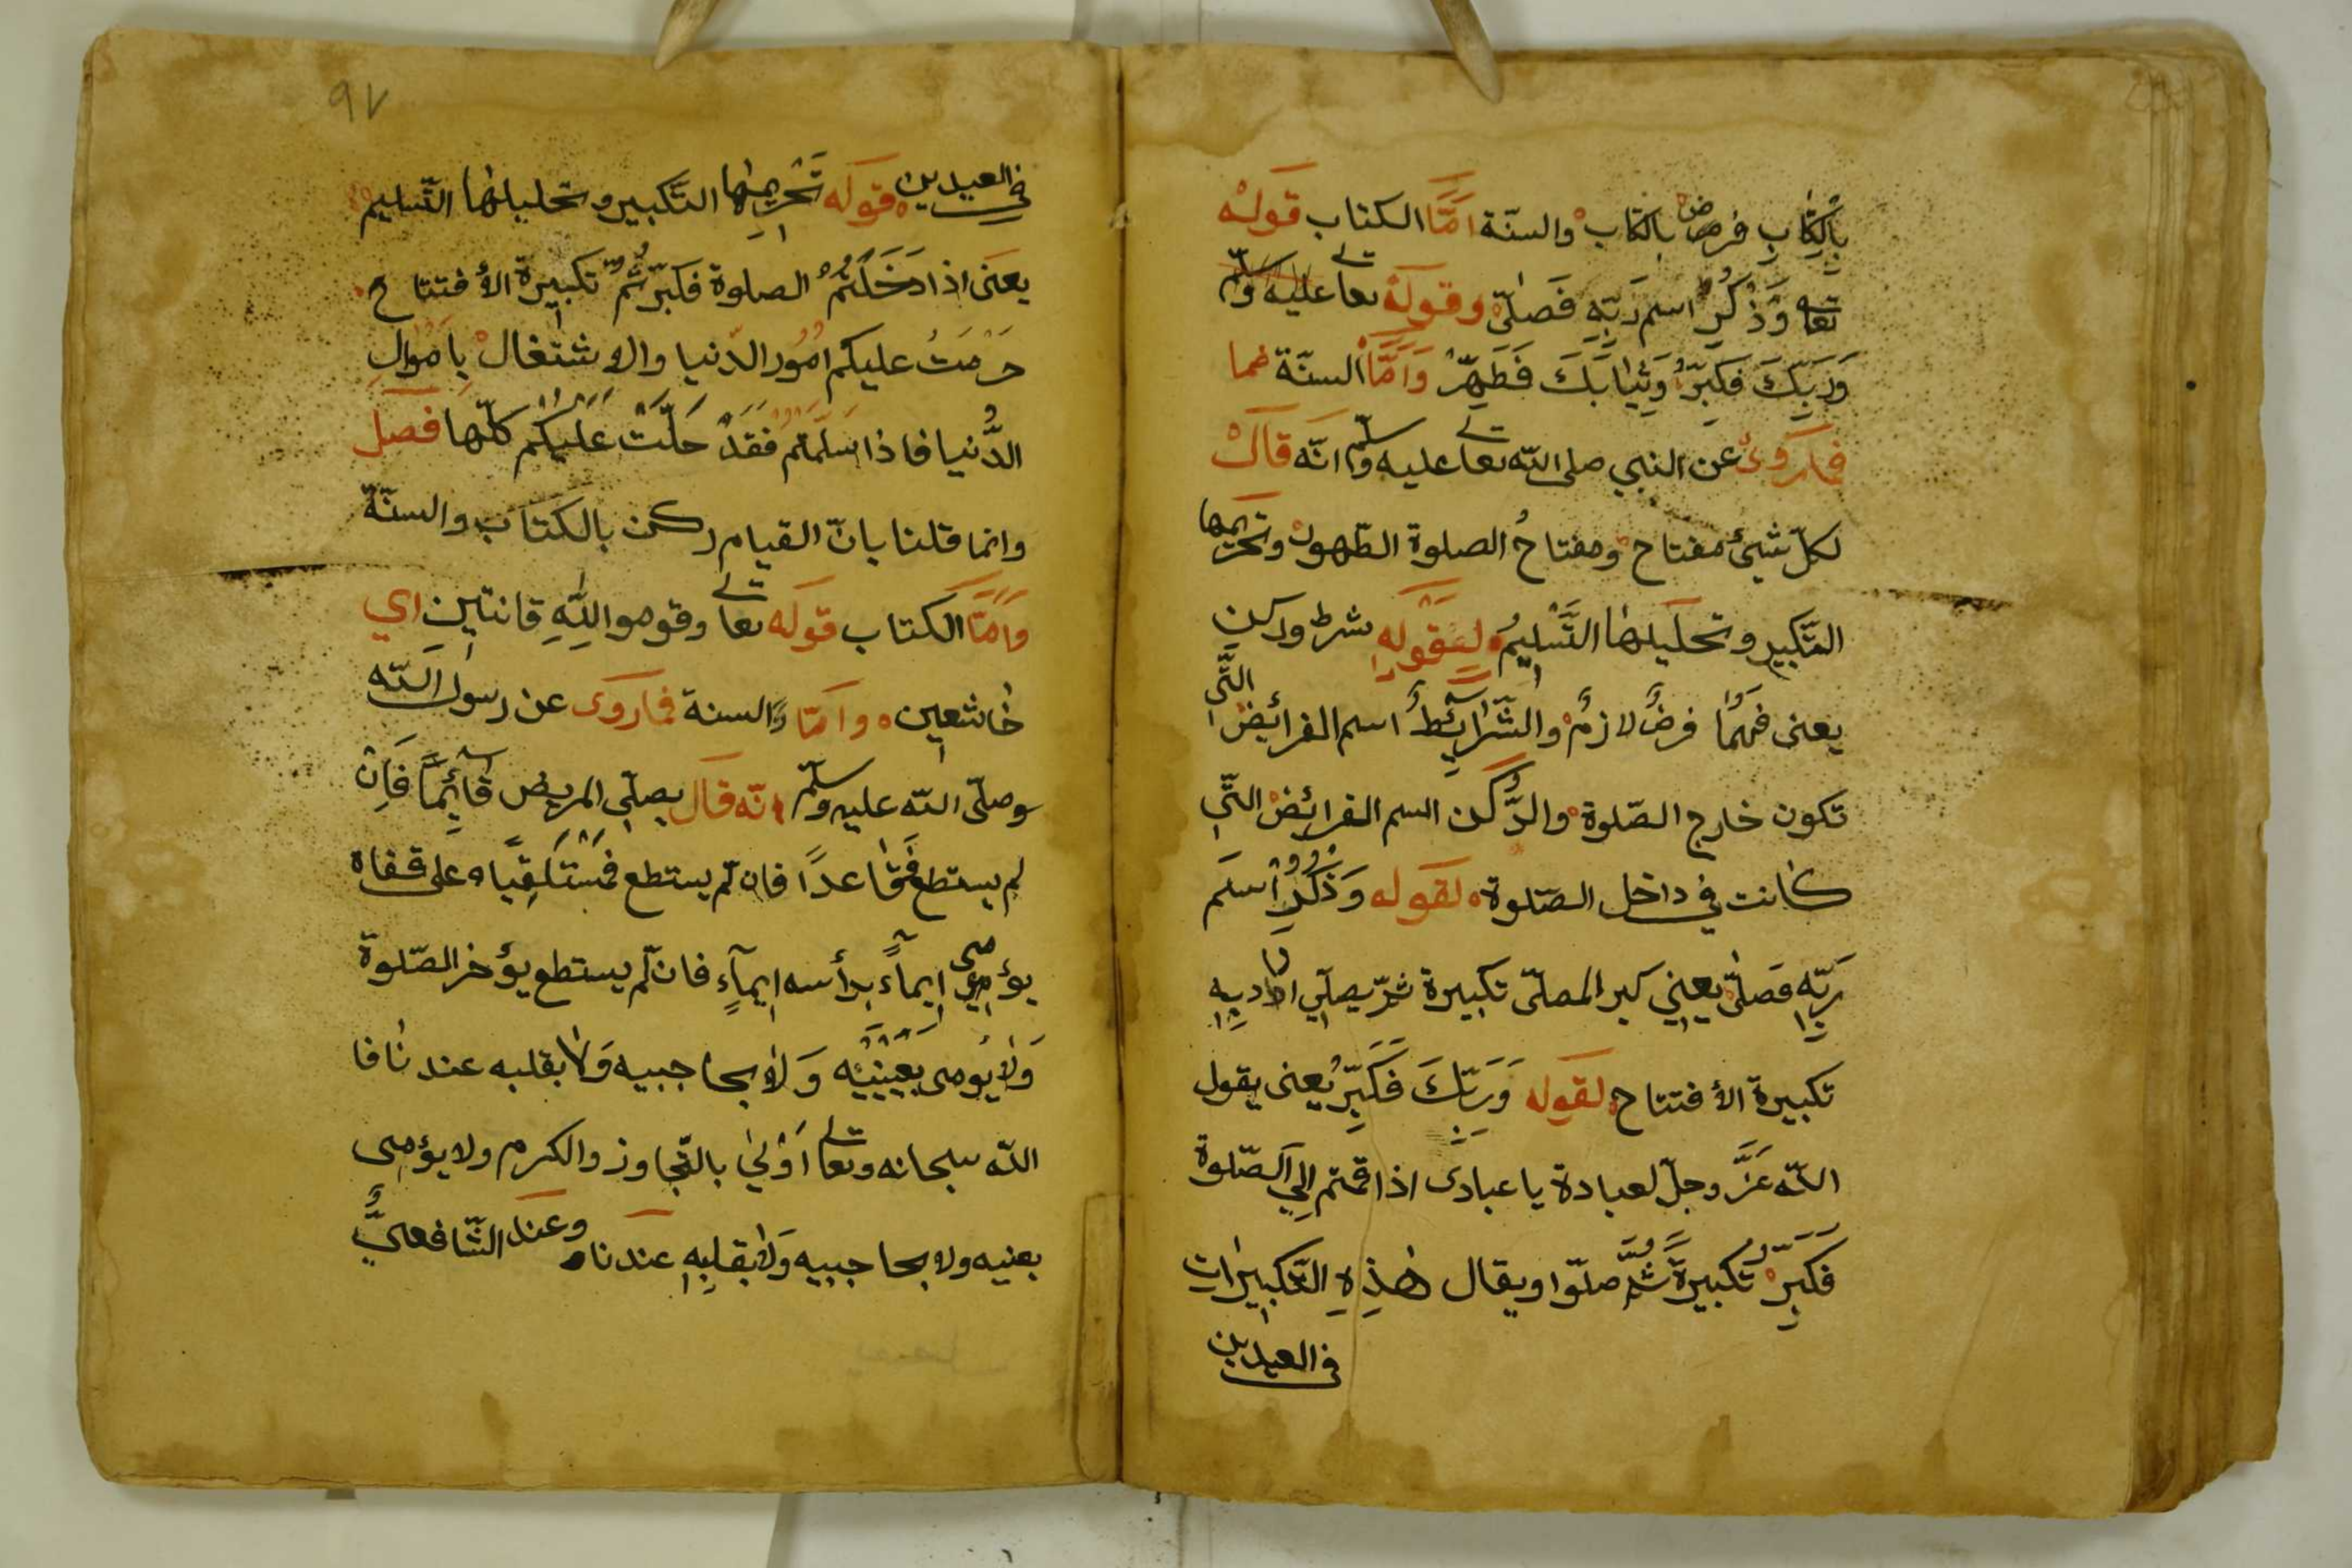 بِالْكِتَابِ فرض بالكتاب والسنّة امَّا الكتاب قوله
تعا وَذَكَرَ اسم رَبِّهِ فَصَلّى وقوله تعا عليه وسلّم
وَرَبِّكَ فَكَبِّرْ وَثِيَابَكَ فَطَهِّرْ وَاَمَّا السنّة فما
فما روى عن النبي صلى اللّه تعا عليه وسلّم انّه قال
لكلّ شيئ مفتاح ومفتاحُ الصلوة الطّهور وتحريمها
التّكبير وتحليلها التَّسْلِيمُ لقوله شرط وركن
يعنى فهما فرضٌ لازمٌ والشَّرَائِطُ اسم الفرائض الّتى
تكون خارج الصّلوة والرُّكن اسم الفرائض الّتى
كانت فى داخل الصّلوة لقوله وَذَكَرَ اسْمَ
رَبِّهِ فَصَلّى يعنى كبر المصلّى تكبيرة ثمّ يصلّى
تكبيرة الأفتتاح لقوله وَرَبّكَ فَكَبِّرْ يعنى يقول
اللّه عَزَّ وجلّ لعبادة يا عبادى اذا قمتم الى الصّلوة
فكبّرْ تكبيرةً ثُمَّ صلّوا ويقال هٰذِهِ التّكبيرات
فى العيدين
فى العيدين قوله تَحْرِيمُهَا التَّكبير وتحليلها التّسليم
يعنى اذا دَخَلْتُمْ الصلوة فكبّرتُمْ تكبيرة الأفتتاح
حَرُمَتْ عليكم امُور الدّنيا والاشتغالْ بِاَمْوَالِ
الدُّنيا فاذا سلّمتمْ فَقَدْ حَلّتْ عَلَيْكُمْ كلّها فصل
وانما قلنا بانّ القيام ركن بالكتاب والسنّة
وَاَمَّا الكتاب قوله تعا وقوموا لِلّٰهِ قانتين اي
خاشعين وامّا والسنة فما روى عن رسول اللّه
وصلّى اللّه عليه وسلّم انّه قال يصلّى المريض قَائِمًا فَاِنْ
لم يستطع فَقَاعدًا فان لم يستطع فَمُسْتَلْقِيًا على قفاه
يؤمى ايماءً برأسه ايماءٍ فان لم يستطع يؤخر الصّلوة
وَلا يُومى بِعَيْنَيْهِ وَلا بحاجبيه وَلا بقلبه عندنا فا
اللّه سبحانه وتعا اَوْلىٰ بالتّجاوز والكرم ولا يؤمى
بعنيه ولا بحاجبيه وَلا بقلبِهِ عندنا وعند الشّافعىُّ